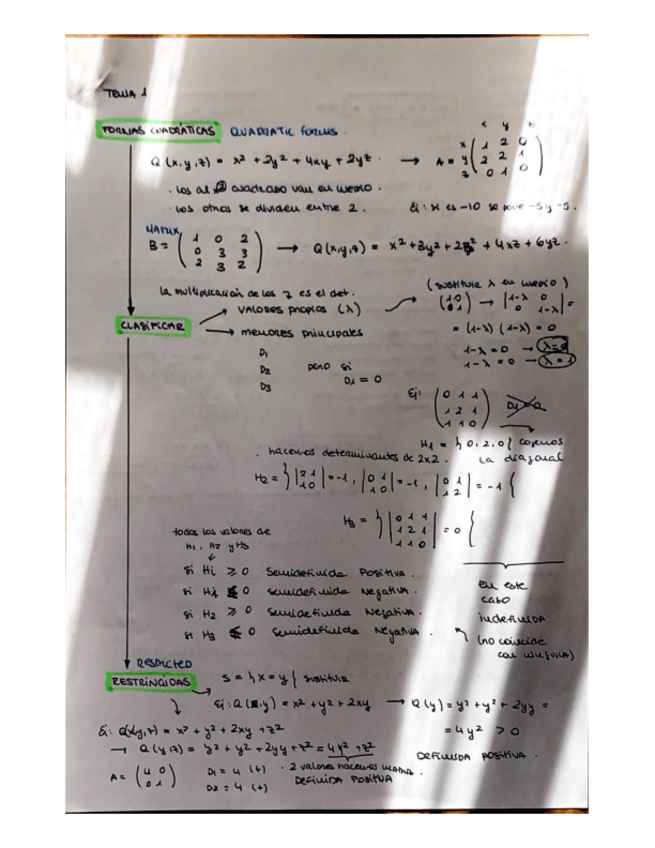 TEMA 1
FORMAS CUADRÁTICAS QUADRATIC FORMS.
x y z
Q(x,y,z) = x² + 2y² + 4xy + 2yz. → A = x y z (1 2 0 / 2 2 1 / 0 1 0)
· Los al cuadrado van en medio.
· Los otros se dividen entre 2. Ej: si es -10 se pone -5 y -5.
MATRIX
B = (1 0 2 / 0 3 3 / 2 3 2) → Q(x,y,z) = x² + 3y² + 2z² + 4xz + 6yz.
La multiplicación de los λ es el det. (sustituir λ en medio)
CLASIFICAR → VALORES PROPIOS (λ) → (1 0 / 0 1) → |1-λ 0 / 0 1-λ| =
= (1-λ) (1-λ) = 0
→ menores principales
1-λ = 0 →
1-λ = 0 → λ = 1
D1
D2 pero si
D3 D1 = 0
Ej: (0 1 1 / 1 2 1 / 1 1 0) D1 = 0
H1 = {0, 2, 0} cojemos
· hacemos determinantes de 2x2. la diagonal
H2 = {|2 1 / 1 0| = -1, |0 1 / 1 0| = -1, |0 1 / 1 2| = -1}
H3 = {|0 1 1 / 1 2 1 / 1 1 0| = 0}
todos los valores de
H1, H2 y H3
↓
si Hi ≥ 0 Semidefinida Positiva.
si Hi ≤ 0 semidefinida Negativa.
si H2 ≥ 0 Semidefinida Negativa.
si H3 ≤ 0 Semidefinida Negativa.
en este
caso
indefinida
(no coincide
con ninguna)
RESTRICTED
RESTRINGIDAS → S = {x = y} sustituir
Ej: Q(x,y) = x² + y² + 2xy → Q(y) = y² + y² + 2yy =
= 4y² > 0
DEFINIDA POSITIVA.
Ej: Q(x,y,z) = x² + y² + 2xy + z²
→ Q(y,z) = y² + y² + 2yy + z² = 4y² + z²
A = (4 0 / 0 1) D1 = 4 (+) · 2 valores hacemos matriz.
D2 = 4 (+) DEFINIDA POSITIVA